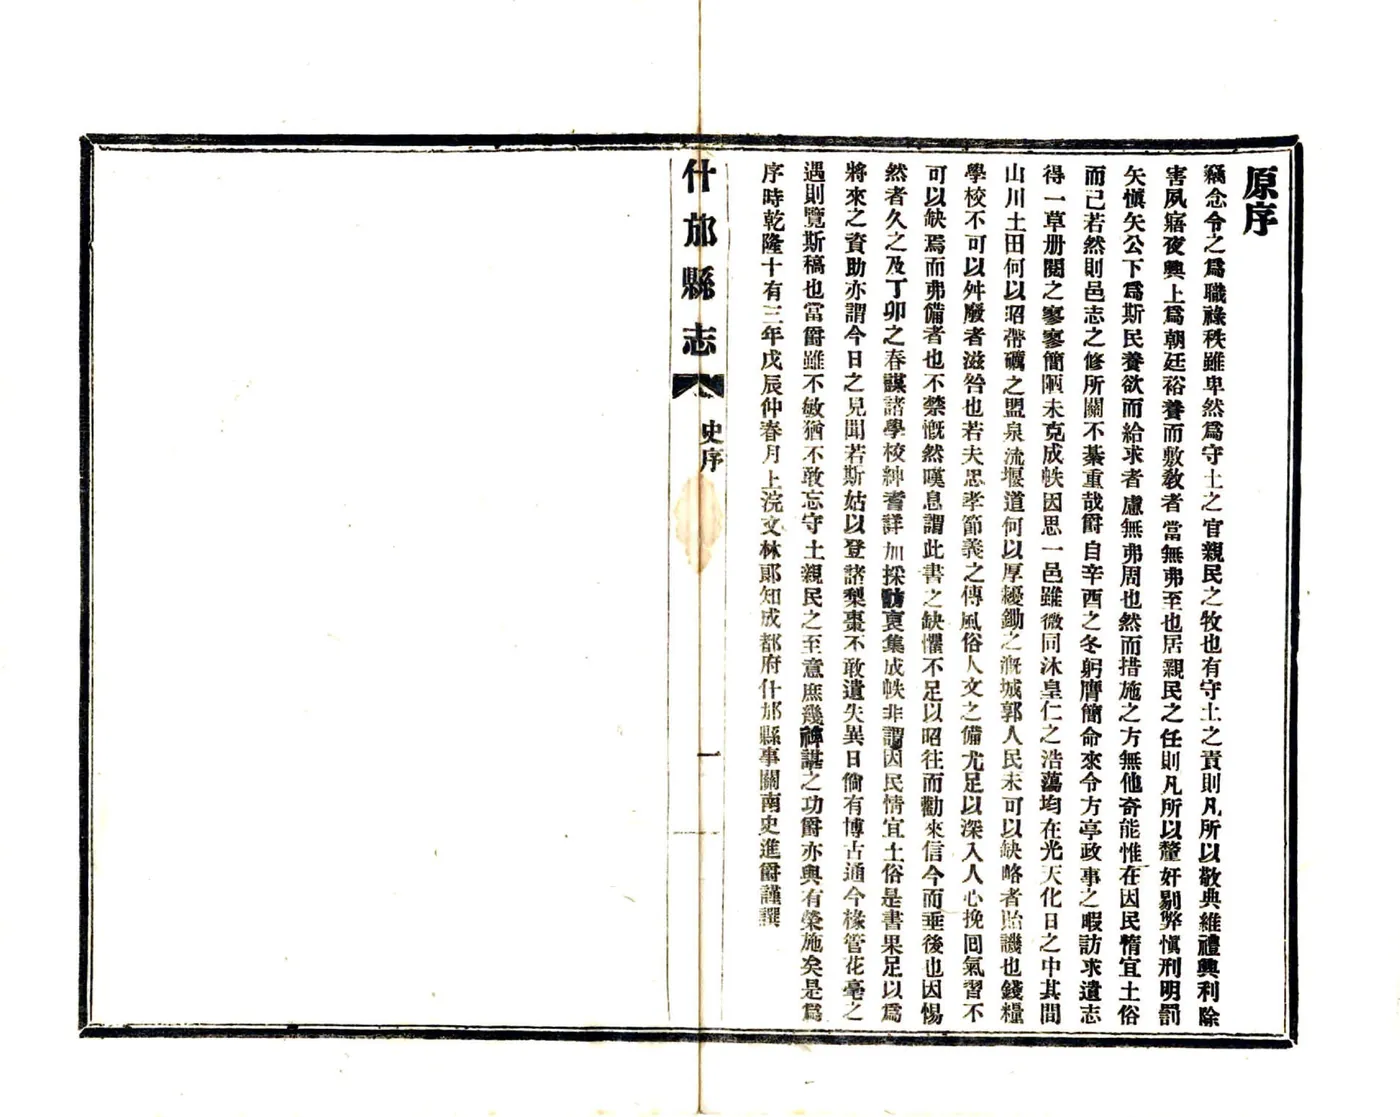 原序
竊念令之爲職祿秩雖卑然爲守土之官親民之牧也有守土之責則凡所以敬典維禮興利除
害夙寤夜興上爲朝廷裕養而敷敎者當無弗至也居親民之任則凡所以釐奸剔弊愼刑明罰
矢愼矢公下爲斯民養欲而給求者慮無弗周也然而措施之方無他奇能惟在因民情宜土俗
而已若然則邑志之修所關不綦重哉爵自辛酉之冬躬膺簡命來令方亭政事之暇訪求遺志
得一草册閱之寥寥簡陋未克成帙因思一邑雖微同沐皇仁之浩蕩均在光天化日之中其間
山川土田何以昭帶礪之盟泉流堰道何以厚耰鋤之漑城郭人民未可以缺略者貽譏也錢糧
學校不可以舛廢者滋咎也若夫忠孝節義之傳風俗人文之備尤足以深入人心挽回氣習不
可以缺焉而弗備者也不禁慨然嘆息謂此書之缺懼不足以昭往而勸來信今而垂後也因惕
然者久之及丁卯之春謀諸學校紳耆詳加採訪裒集成帙非謂因民情宜土俗是書果足以爲
將來之資助亦謂今日之見聞若斯姑以登諸梨棗不敢遺失異日倘有博古通今椽管花毫之
遇則覽斯稿也當爵雖不敏猶不敢忘守土親民之至意庶幾裨諶之功爵亦與有榮施矣是爲
序時乾隆十有三年戊辰仲春月上浣文林郎知成都府什邡縣事關南史進爵謹譔
什邡縣志
史序
一